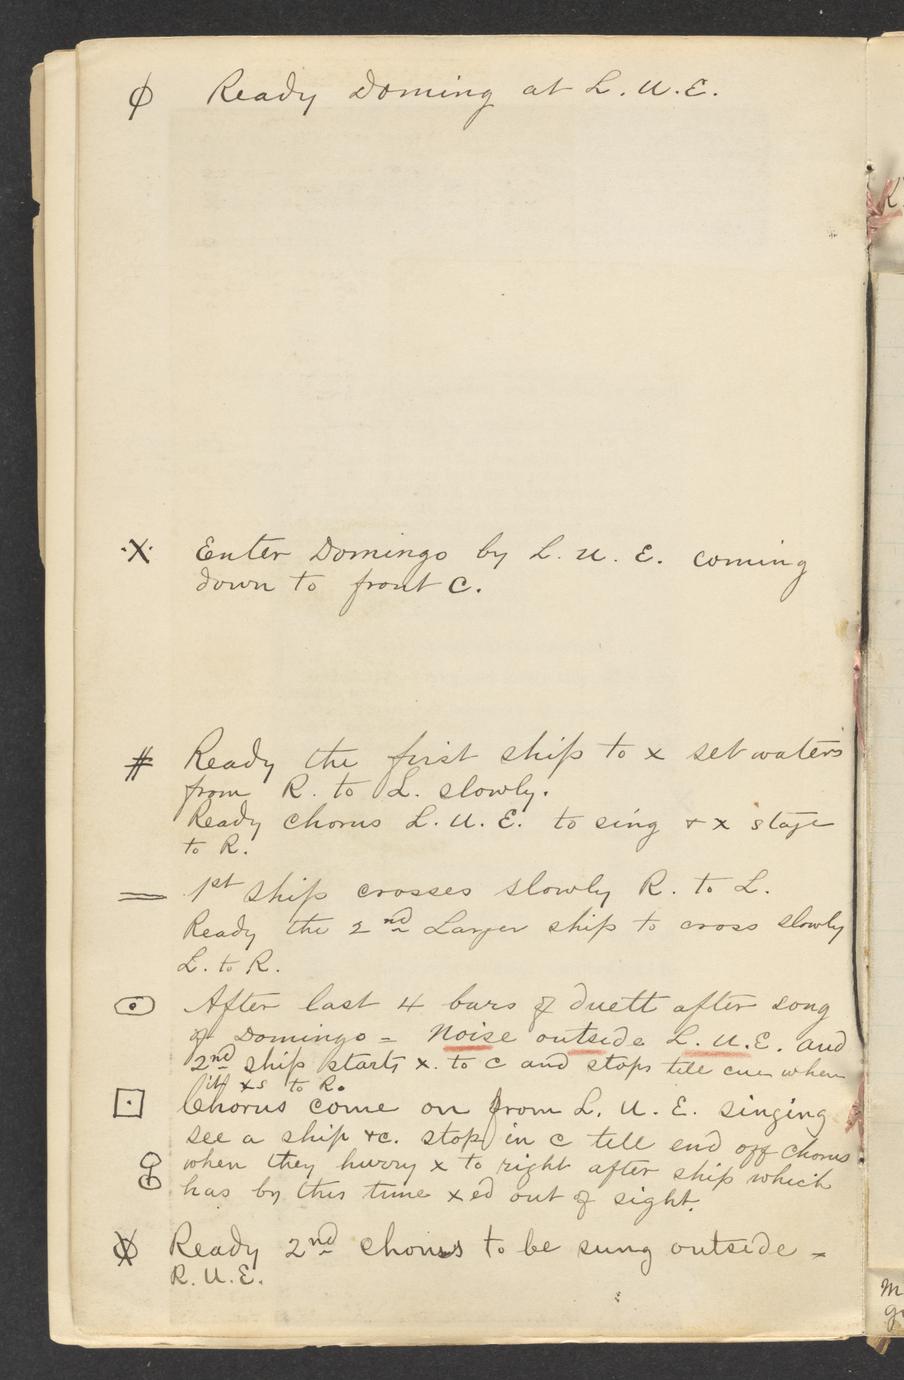 ϕ Ready Doming at L. U. E.
·X· Enter Domingo by L. U. E. coming
down to front C.
# Ready the first ship to x set waters
from R. to L. slowly.
Ready chorus L. U. E. to sing & x stage
to R.
= 1st ship crosses slowly R. to L.
Ready the 2nd Larger ship to cross slowly
L. to R.
After last 4 bars of duett after song
of Domingo = Noise outside L. U. E. and
2nd ship starts x. to C and stops till cue when
it xs to R.
Chorus come on from L. U. E. singing
see a ship &c. stop in C till end off chorus
when they hurry x to right after ship which
has by this time xed out of sight.
Ready 2nd chorus to be sung outside -
R. U. E.